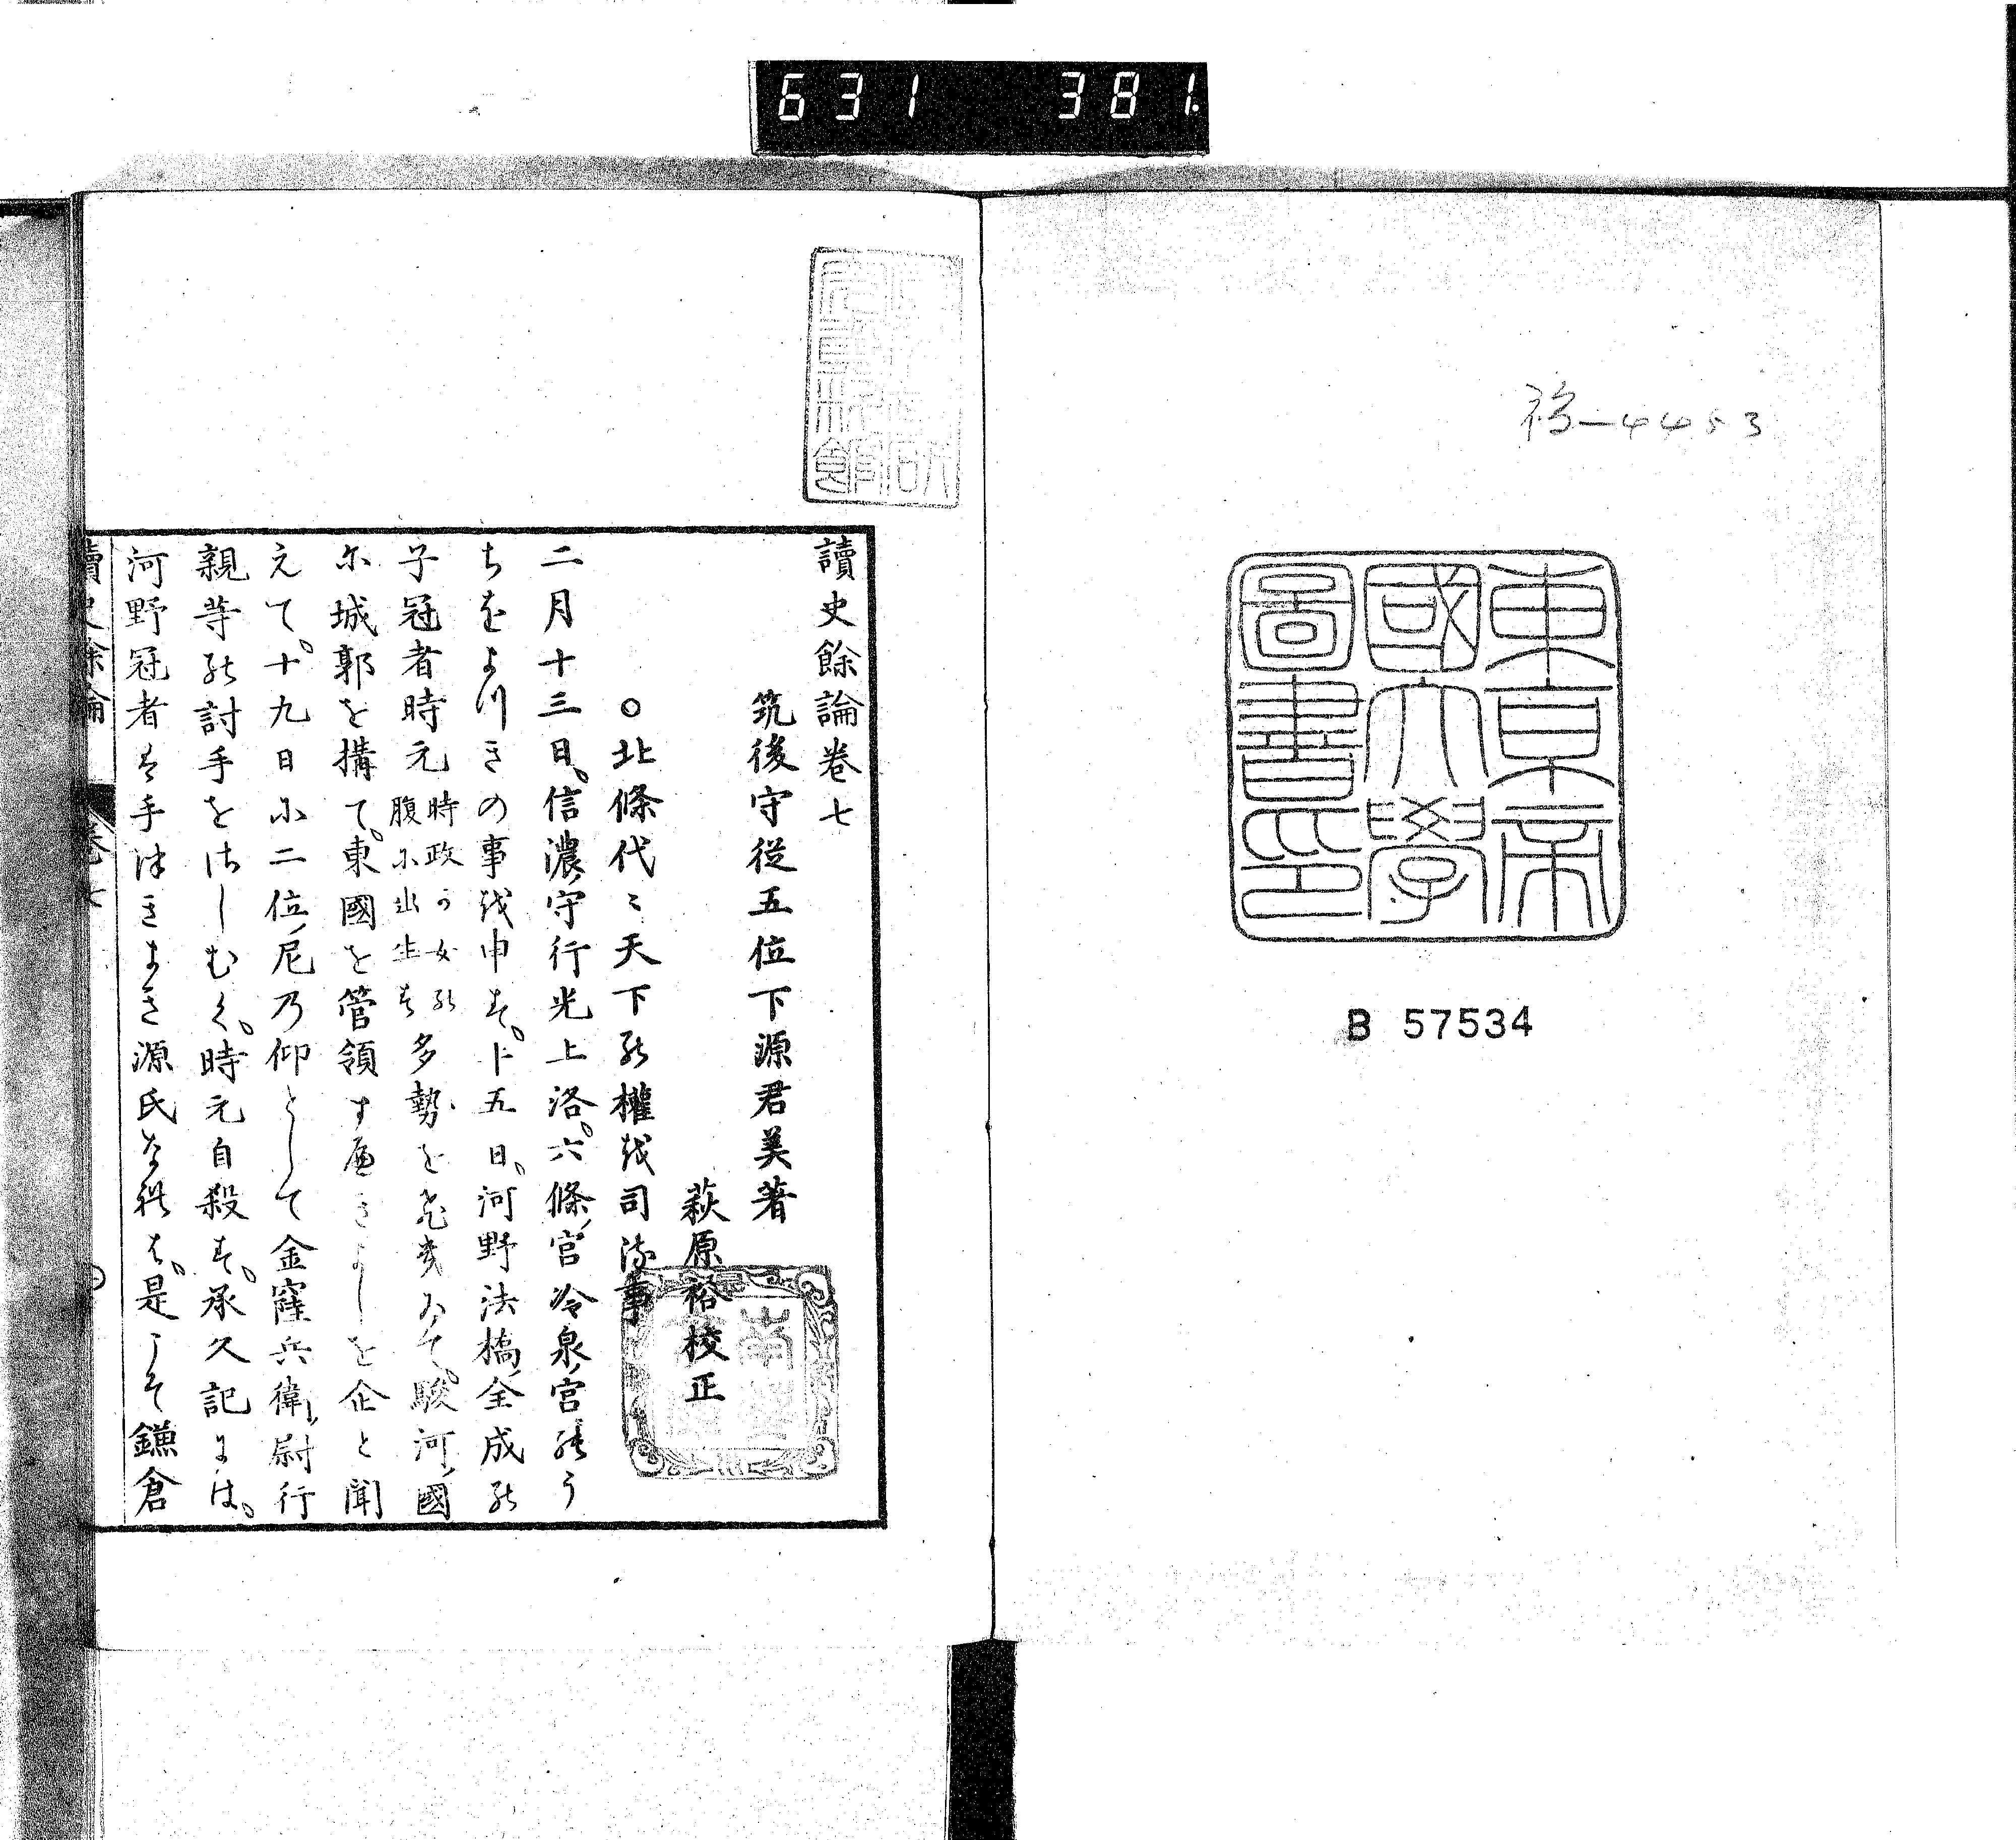 631 381
福-4453
東京帝
國大學
圖書印
B 57534
讀史餘論卷七
筑後守從五位下源君美著
萩原裕校正
○北條代〻天下の權を司る事
二月十三日。信濃守行光上洛。六條宮冷泉宮のう
ちをよりつきの事を申す。十五日。河野法橋全成の
子冠者時元時政が女の腹に出生す多勢を率ゐて。駿河國
に城郭を搆て。東國を管領すべきよしを企と聞
えて。十九日に二位尼乃仰として金窪兵衛尉行
親等の討手をさしむく。時元自殺す。承久記には。
河野冠者は手はきまき源氏なれば。是こそ鎌倉
讀史餘論 卷七